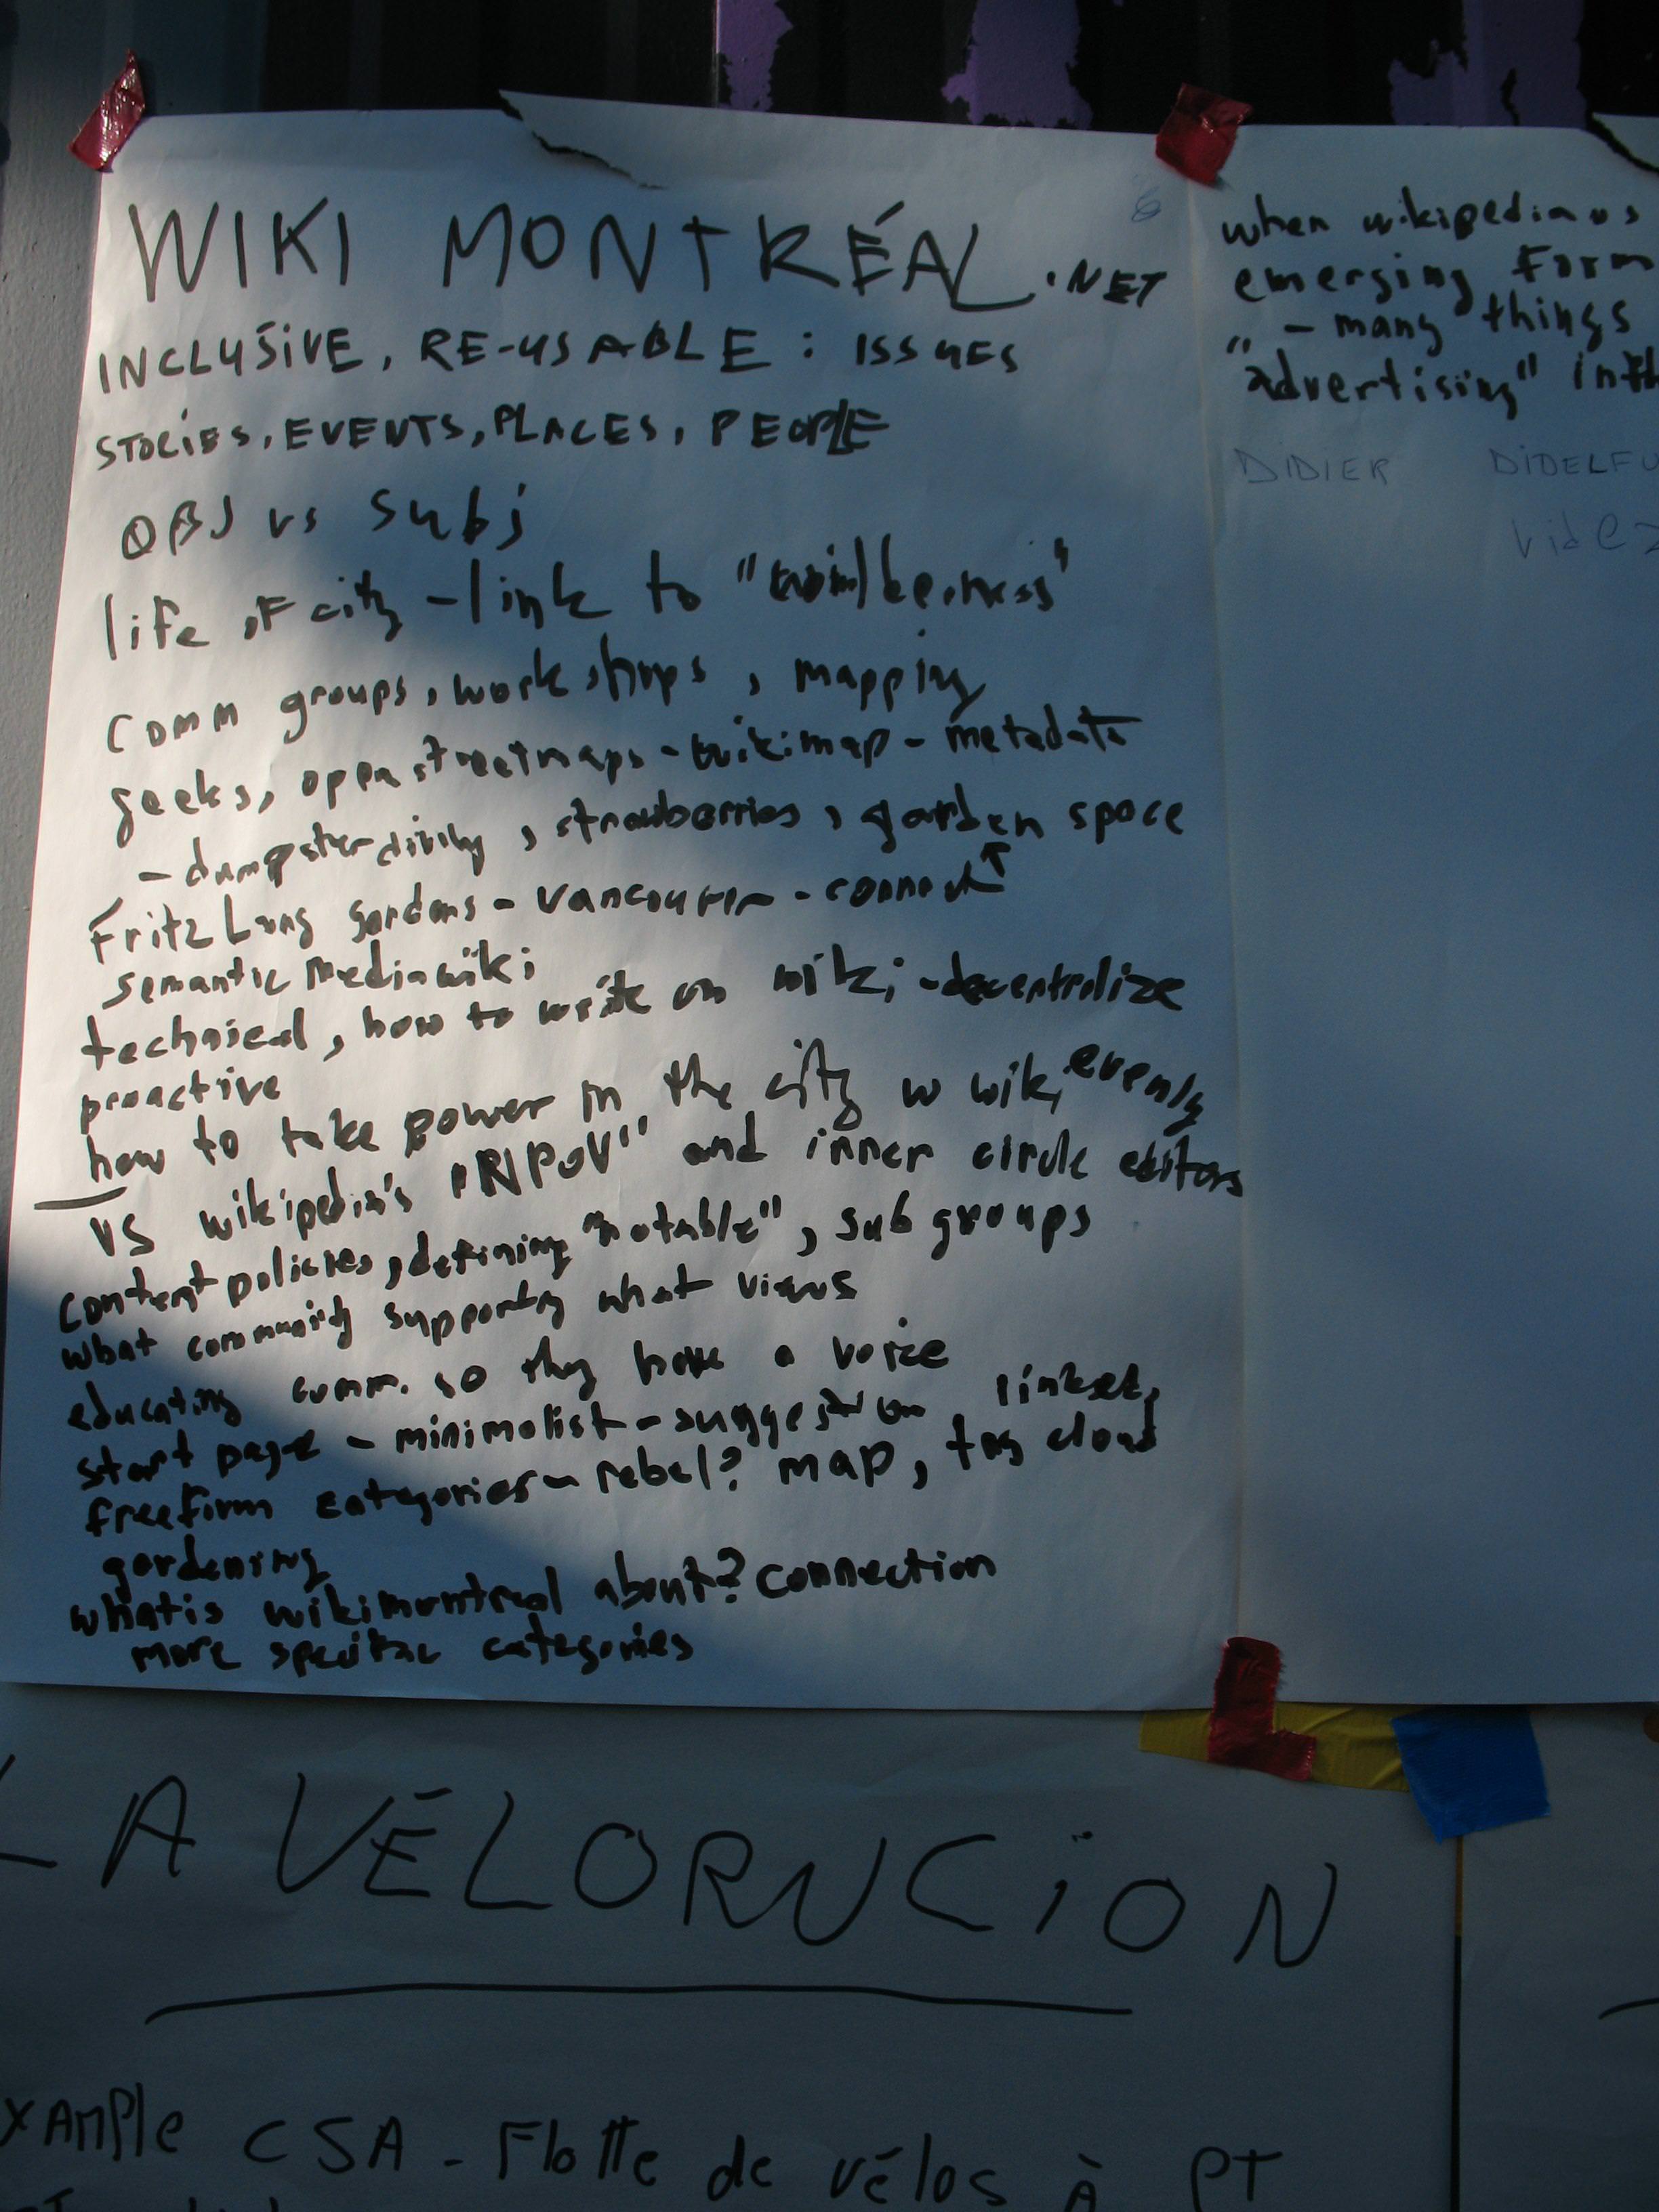 WIKI MONTRÉAL.NET
INCLUSIVE, RE-USABLE: ISSUES
STORIES, EVENTS, PLACES, PEOPLE
OBJ vs Subj
life of city - link to "
Comm groups, workshops, mapping
geeks, openstreetmaps - wikimap - metadata
- dumpster diving, strawberries, garden space
Fritz Lang gardens - Vancouver - connect ↑
semantic mediawiki
technical, how to write on wiki - decentralize
proactive
how to take power in the city w wiki evenly
VS wikipedia's "NPOV" and inner circle editors
content policies, defining "notable", sub groups
what community supporting what views
educating comm. so they have a voice
start page - minimalist - suggestion linkset,
freeform categories - rebel? map, tag cloud
gardening
what is wikimontreal about? connection
more specific categories
when wikipedia vs
emerging form
" - many things
"advertising" inth
DIDIER DIDELFU
videz
LA VÉLORUCION
XAMPle CSA - Flotte de vélos À PT